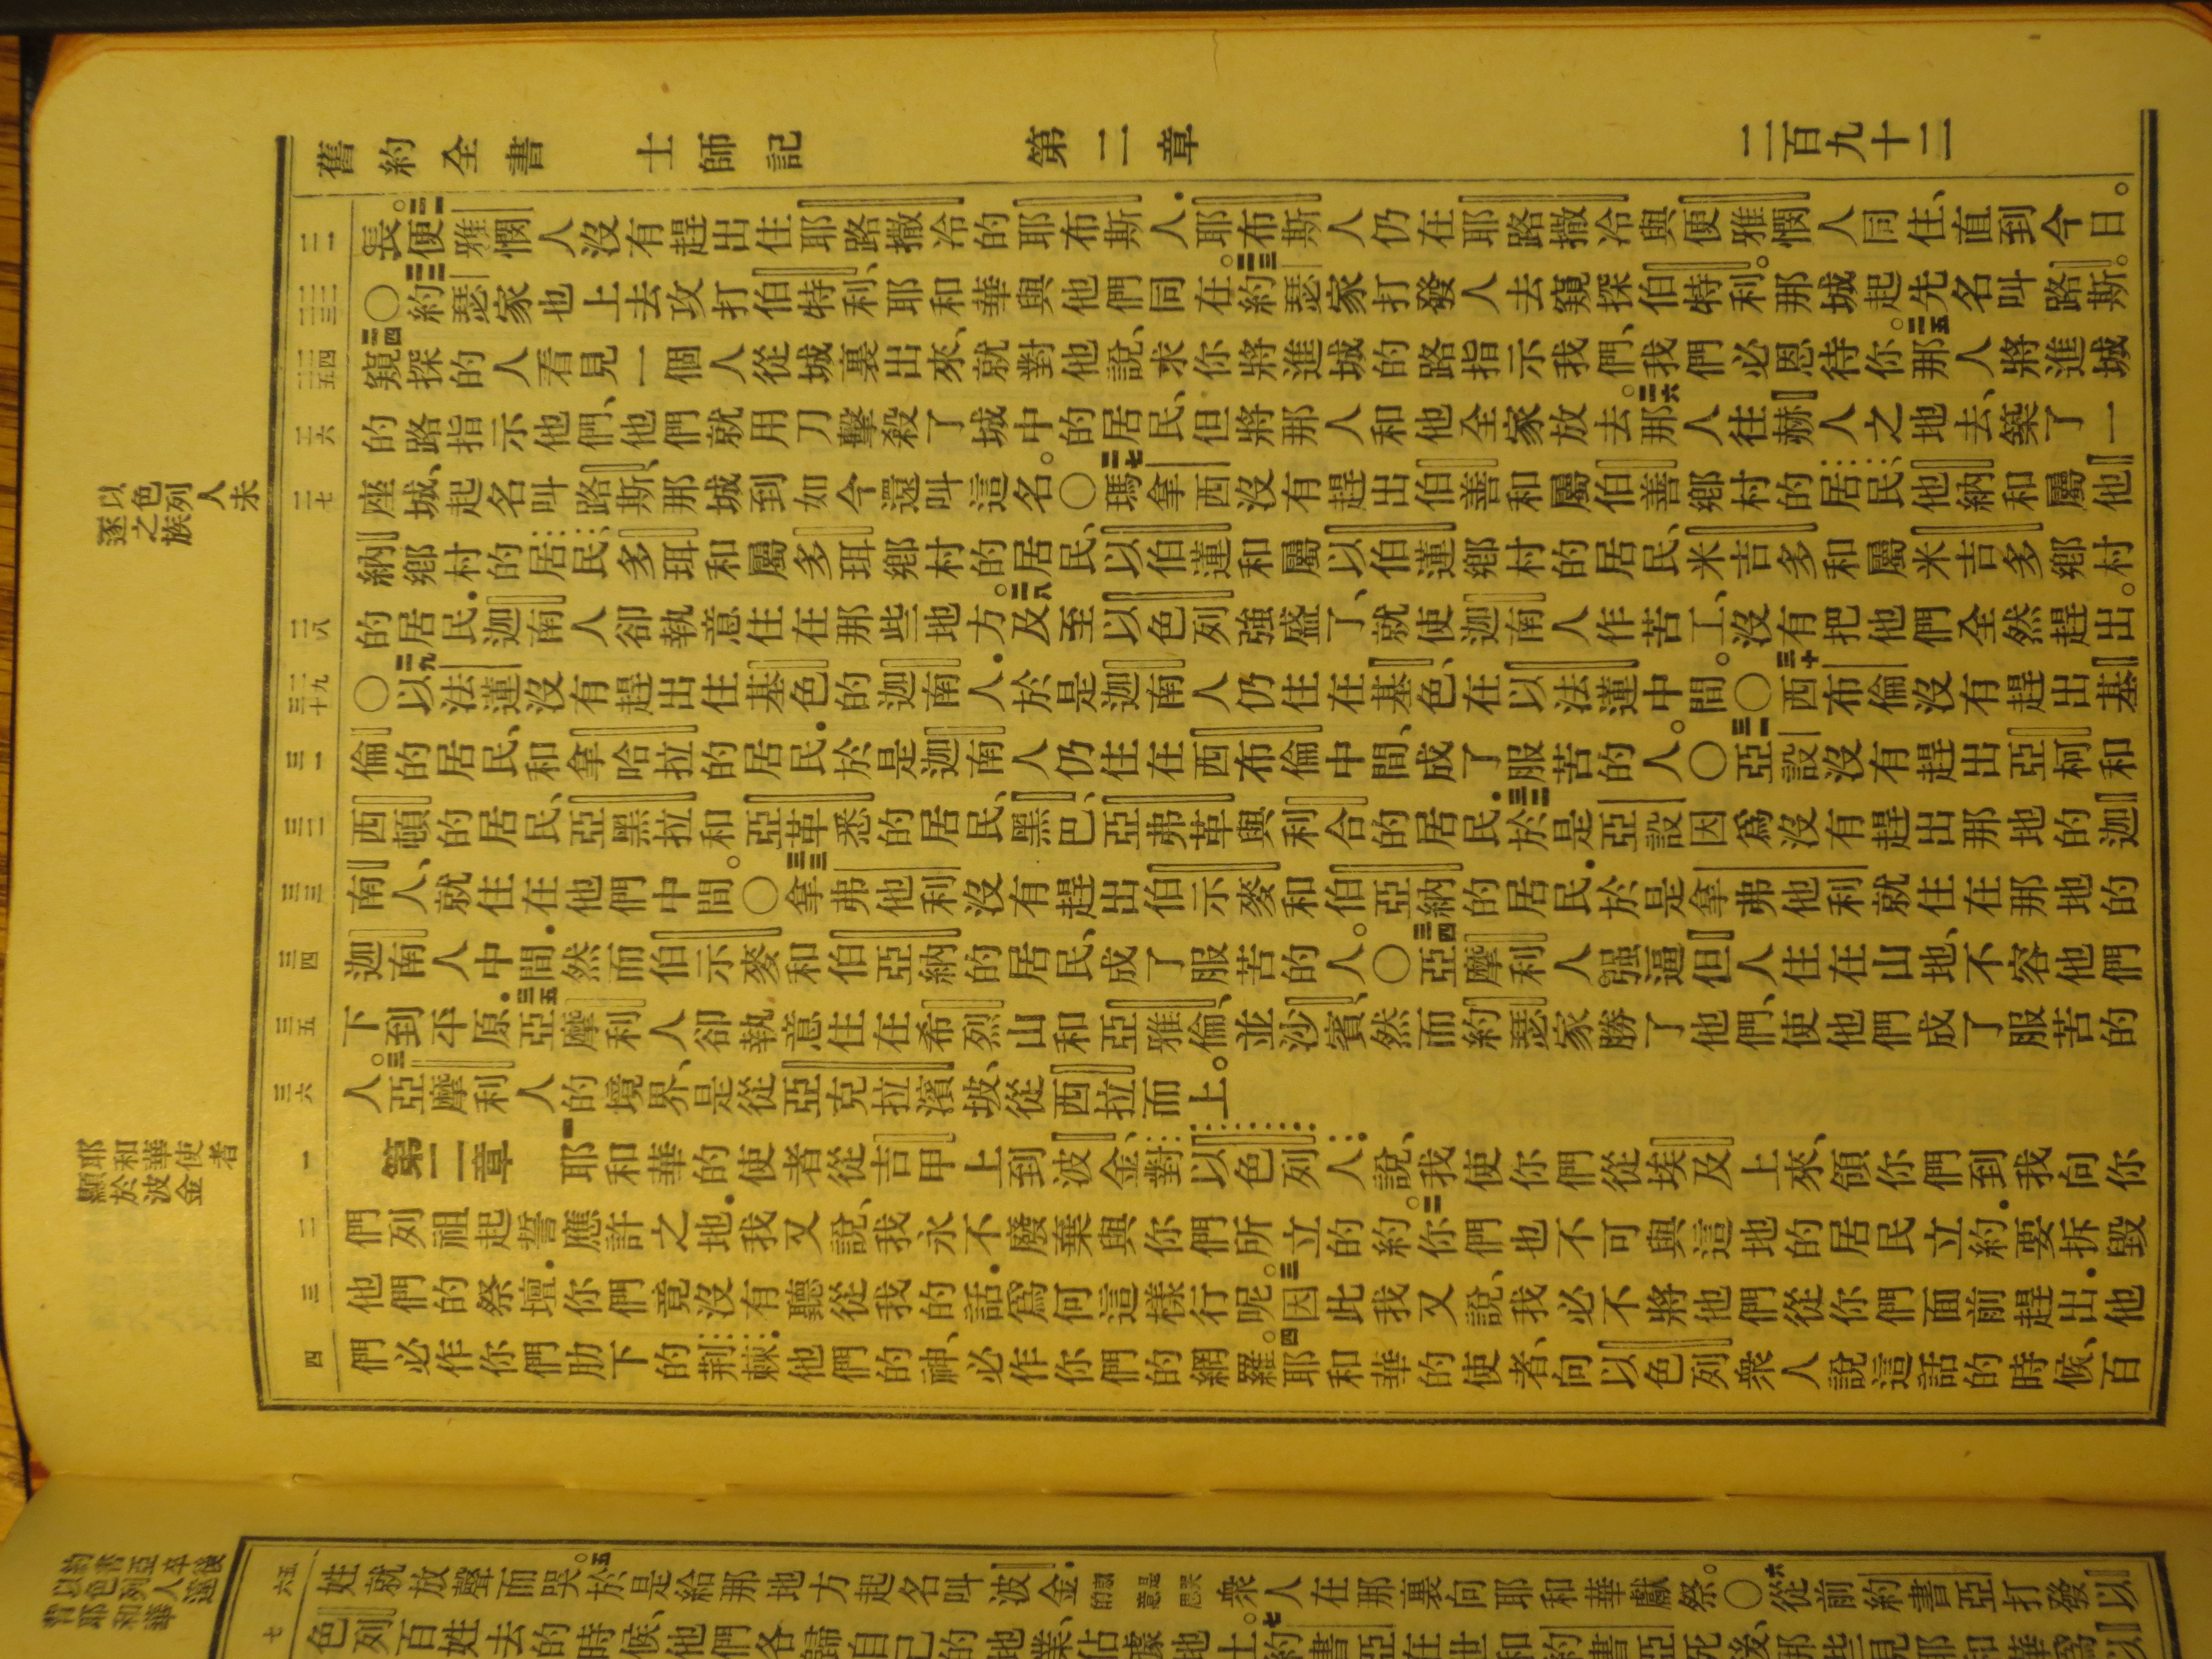 舊約全書 士師記 第二章 二百九十二
長。二一便雅憫人沒有趕出住耶路撒冷的耶布斯人．耶布斯人仍在耶路撒冷與便雅憫人同住、直到今日。
〇二二約瑟家也上去攻打伯特利、耶和華與他們同在。二三約瑟家打發人去窺探伯特利。那城起先名叫路斯。
二四窺探的人看見一個人從城裏出來、就對他說、求你將進城的路指示我們、我們必恩待你。二五那人將進城
的路指示他們、他們就用刀擊殺了城中的居民、但將那人和他全家放去。二六那人往赫人之地去、築了一
座城、起名叫路斯、那城到如今還叫這名。〇二七瑪拿西沒有趕出伯善和屬伯善鄉村的居民、他納和屬他
納鄉村的居民、多珥和屬多珥鄉村的居民、以伯蓮和屬以伯蓮鄉村的居民、米吉多和屬米吉多鄉村
的居民．迦南人卻執意住在那些地方。二八及至以色列強盛了、就使迦南人作苦工、沒有把他們全然趕出。
〇二九以法蓮沒有趕出住基色的迦南人．於是迦南人仍住在基色、在以法蓮中間。〇三十西布倫沒有趕出基
倫的居民、和拿哈拉的居民．於是迦南人仍住在西布倫中間、成了服苦的人。〇三一亞設沒有趕出亞柯和
西頓的居民、亞黑拉和亞革悉的居民、黑巴、亞弗革與利合的居民．三二於是亞設因爲沒有趕出那地的迦
南人、就住在他們中間。〇三三拿弗他利沒有趕出伯示麥和伯亞納的居民．於是拿弗他利就住在那地的
迦南人中間．然而伯示麥和伯亞納的居民、成了服苦的人。〇三四亞摩利人强逼但人住在山地、不容他們
下到平原．三五亞摩利人卻執意住在希烈山和亞雅倫、並沙賓、然而約瑟家勝了他們、使他們成了服苦的
人。三六亞摩利人的境界、是從亞克拉濱坡、從西拉而上。
第二章 一耶和華的使者從吉甲上到波金、對以色列人說、我使你們從埃及上來、領你們到我向你
們列祖起誓應許之地．我又說、我永不廢棄與你們所立的約。二你們也不可與這地的居民立約．要拆毀
他們的祭壇．你們竟沒有聽從我的話．爲何這樣行呢。三因此我又說、我必不將他們從你們面前趕出．他
們必作你們肋下的荆棘．他們的神、必作你們的網羅。四耶和華的使者、向以色列衆人說這話的時候、百
以色列人未
逐之族
耶和華使者
顯於波金
姓就放聲而哭。五於是給那地方起名叫波金．衆人在那裏向耶和華獻祭。〇六從前約書亞打發以
色列百姓去的時候、他們各歸自己的地業、佔據地土。七約書亞在世和約書亞死後、那些見耶和華爲以